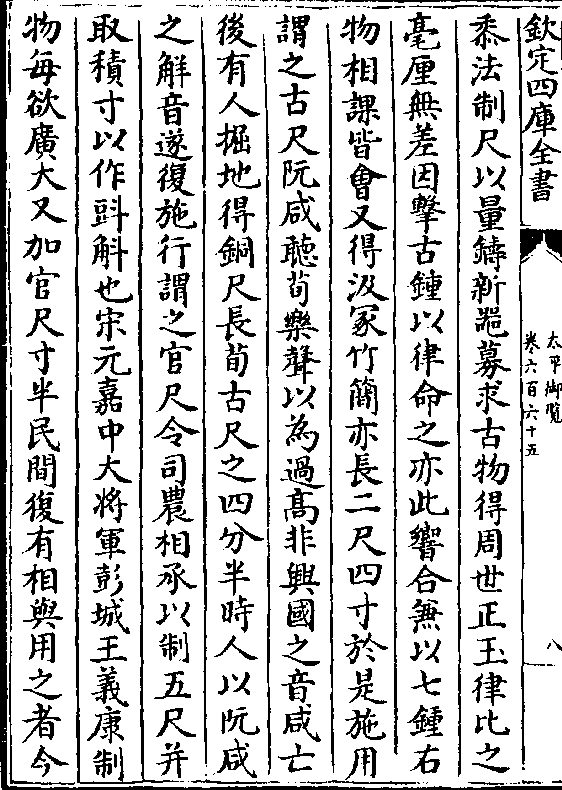 欽定四庫全書
太平御覽
卷六百六十五
八
黍法制尺以量鑄新噐募求古物得周世正玉律比之
毫厘無差因擊古鍾以律命之亦此響合無以七鍾右
物相課皆㑹又得汲冢竹簡亦長二尺四寸於是施用
謂之古尺阮咸聽荀樂聲以為過髙非興國之音咸亡
後有人掘地得銅尺長荀古尺之四分半時人以阮咸
之解音遂復施行謂之官尺令司農相承以制五尺并
取積寸以作㪷斛也宋元嘉中大將軍彭城王義康制
物每欲廣大又加官尺寸半民間復有相與用之者今